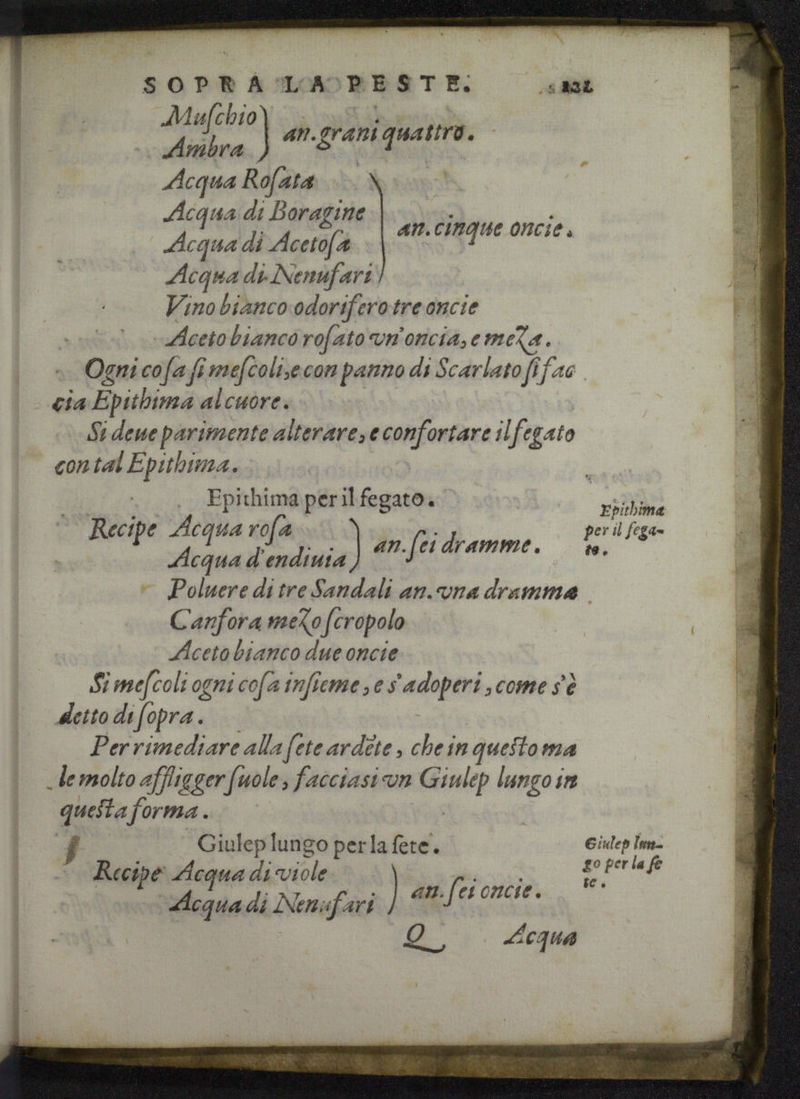 SOPRA LA PESTE. 121
Muſchio
Ambra
an. grani quattro.
Acqua Roſata
Acqua di Boragine
Acqua di Acetoſa
Acqua di Nenufari
an. cinque oncie.
Vino bianco odorifero tre oncie
Aceto bianco roſato vn'oncia, e meza.
Ogni coſa ſi meſcoli, e con panno di Scarlato ſi fac
cia Epithima al cuore.
Si deue parimente alterare, e confortare il fegato
con tal Epithima.
Epithima per il fegato.
Epithima
per il fega-
to.
Recipe Acqua roſa
Acqua d'endiuia
an. ſei dramme.
Poluere di tre Sandali an. vna dramma
Canfora mezo ſcropolo
Aceto bianco due oncie
Si meſcoli ogni coſa inſieme, e s'adoperi, come s'è
detto di ſopra.
Per rimediare alla ſete ardẽte, che in queſto ma
le molto affligger ſuole, facciasi vn Giulep lungo in
queſta forma.
Giulep lungo per la ſete.
Giulep lun-
go per la ſe
te.
Recipe Acqua di viole
Acqua di Nenufari
an. ſei oncie.
Q Acqua